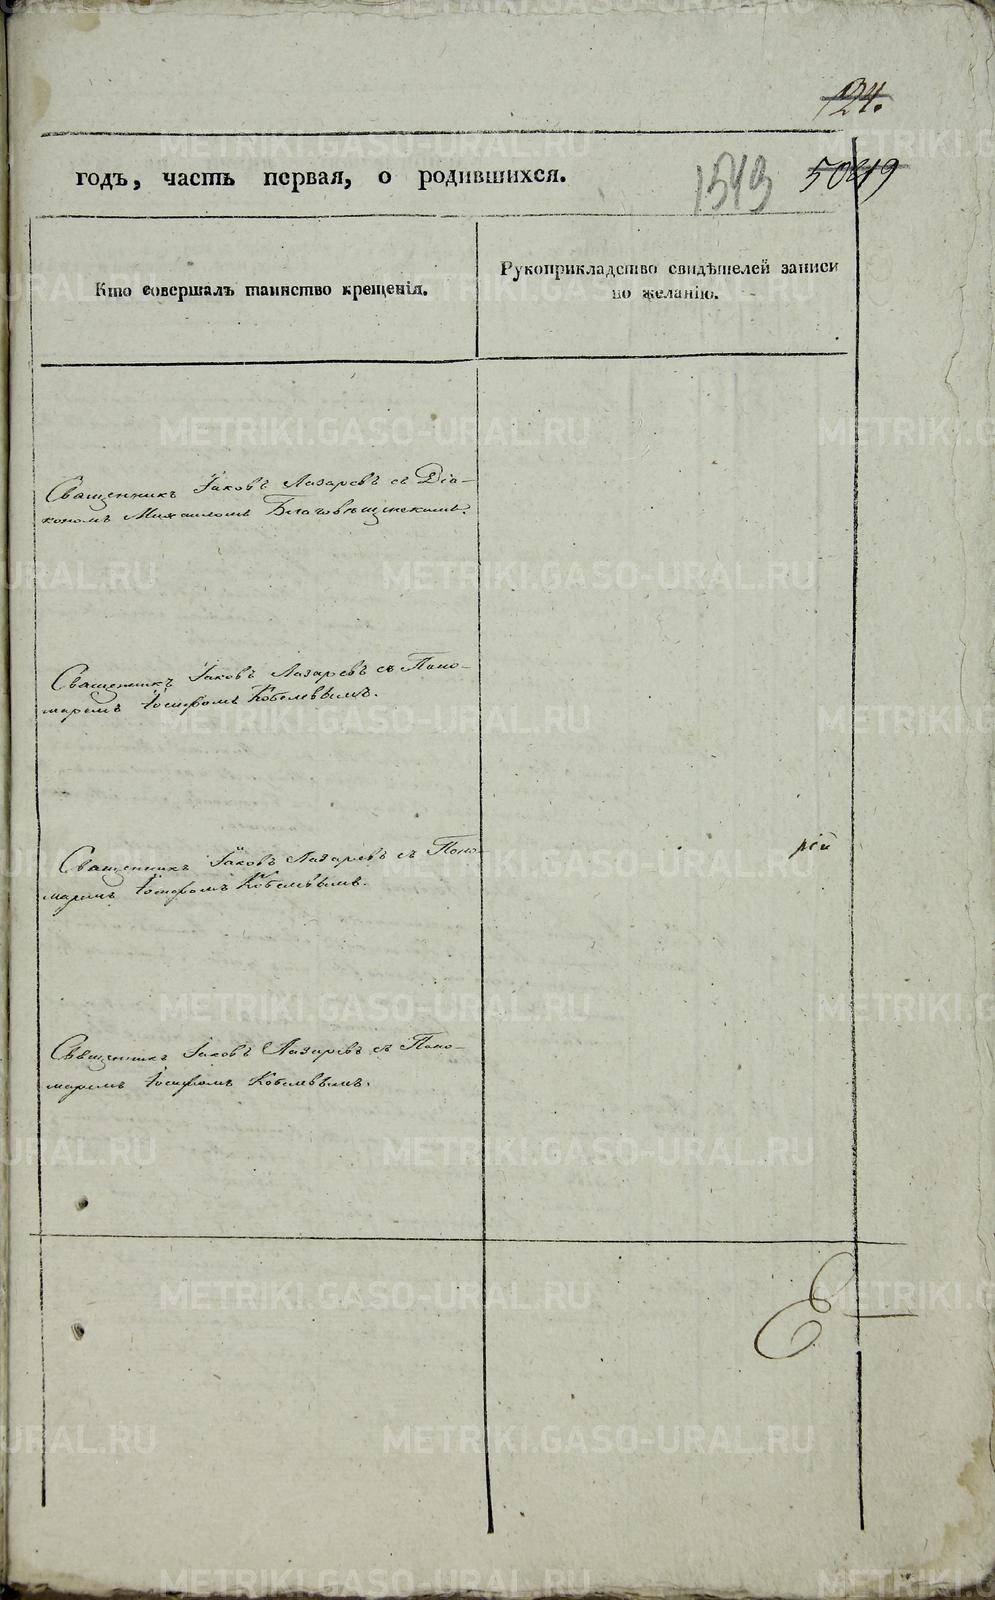 24.
годъ, часть первая, о родившихся.
1543
Кто совершалъ таинство крещенія.
Рукоприкладство свидѣтелей записи
по желанію.
Священникъ Іаковъ Лазаревъ съ Діа-
кономъ Михаиломъ Благовѣщенскимъ.
Священникъ Іаковъ Лазаревъ съ Поно-
маремъ Іосифомъ Кобелевымъ.
Священникъ Іаковъ Лазаревъ съ Поно-
маремъ Іосифомъ Кобелевымъ.
рій
Священникъ Іаковъ Лазаревъ съ Поно-
маремъ Іосифомъ Кобелевымъ.
METRIKI.GASO-URAL.RU